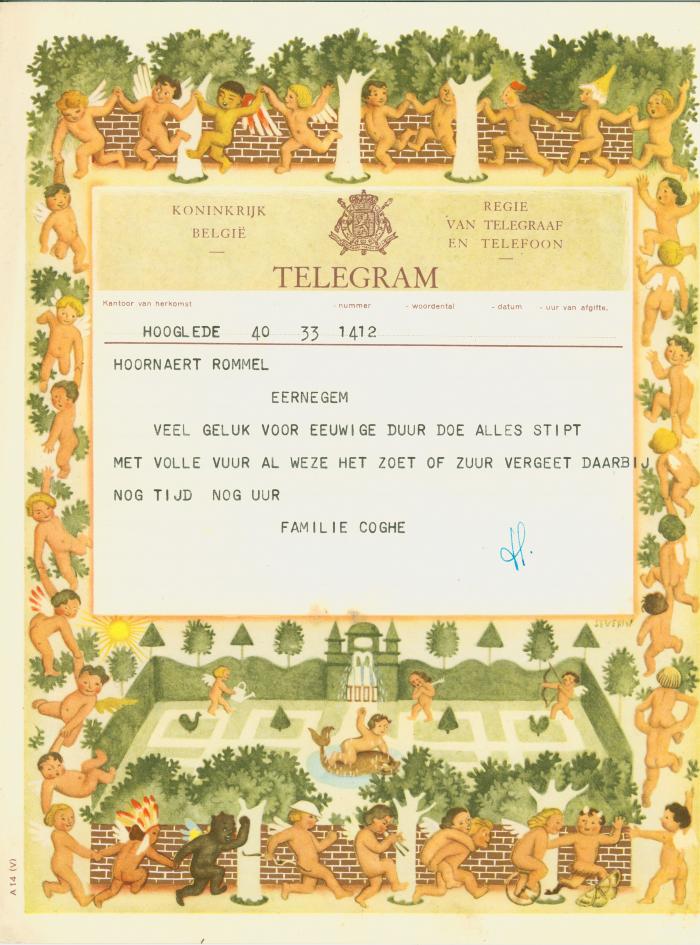 KONINKRIJK
BELGIË
REGIE
VAN TELEGRAAF
EN TELEFOON
TELEGRAM
Kantoor van herkomst - nummer - woordental - datum - uur van afgifte.
HOOGLEDE 40 33 1412
HOORNAERT ROMMEL
EERNEGEM
VEEL GELUK VOOR EEUWIGE DUUR DOE ALLES STIPT
MET VOLLE VUUR AL WEZE HET ZOET OF ZUUR VERGEET DAARBIJ
NOG TIJD NOG UUR
FAMILIE COGHE
H.
SEVERIN
A 14 (V)